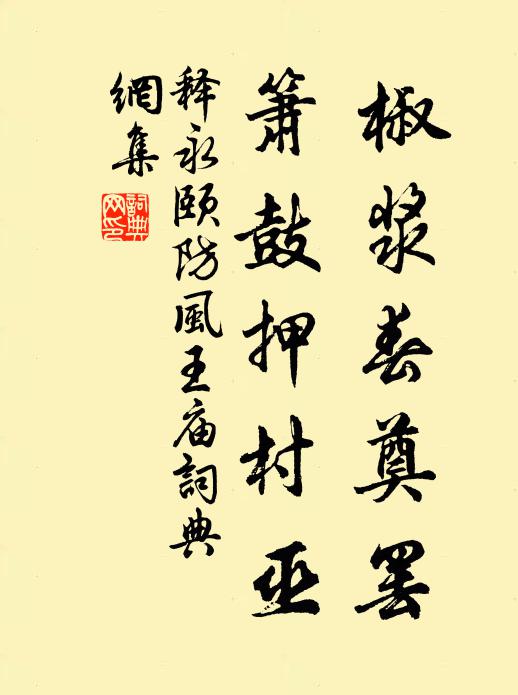 椒浆春奠罢
箫鼓押村巫
释永颐防風王庙詞典
網集
詞典网印